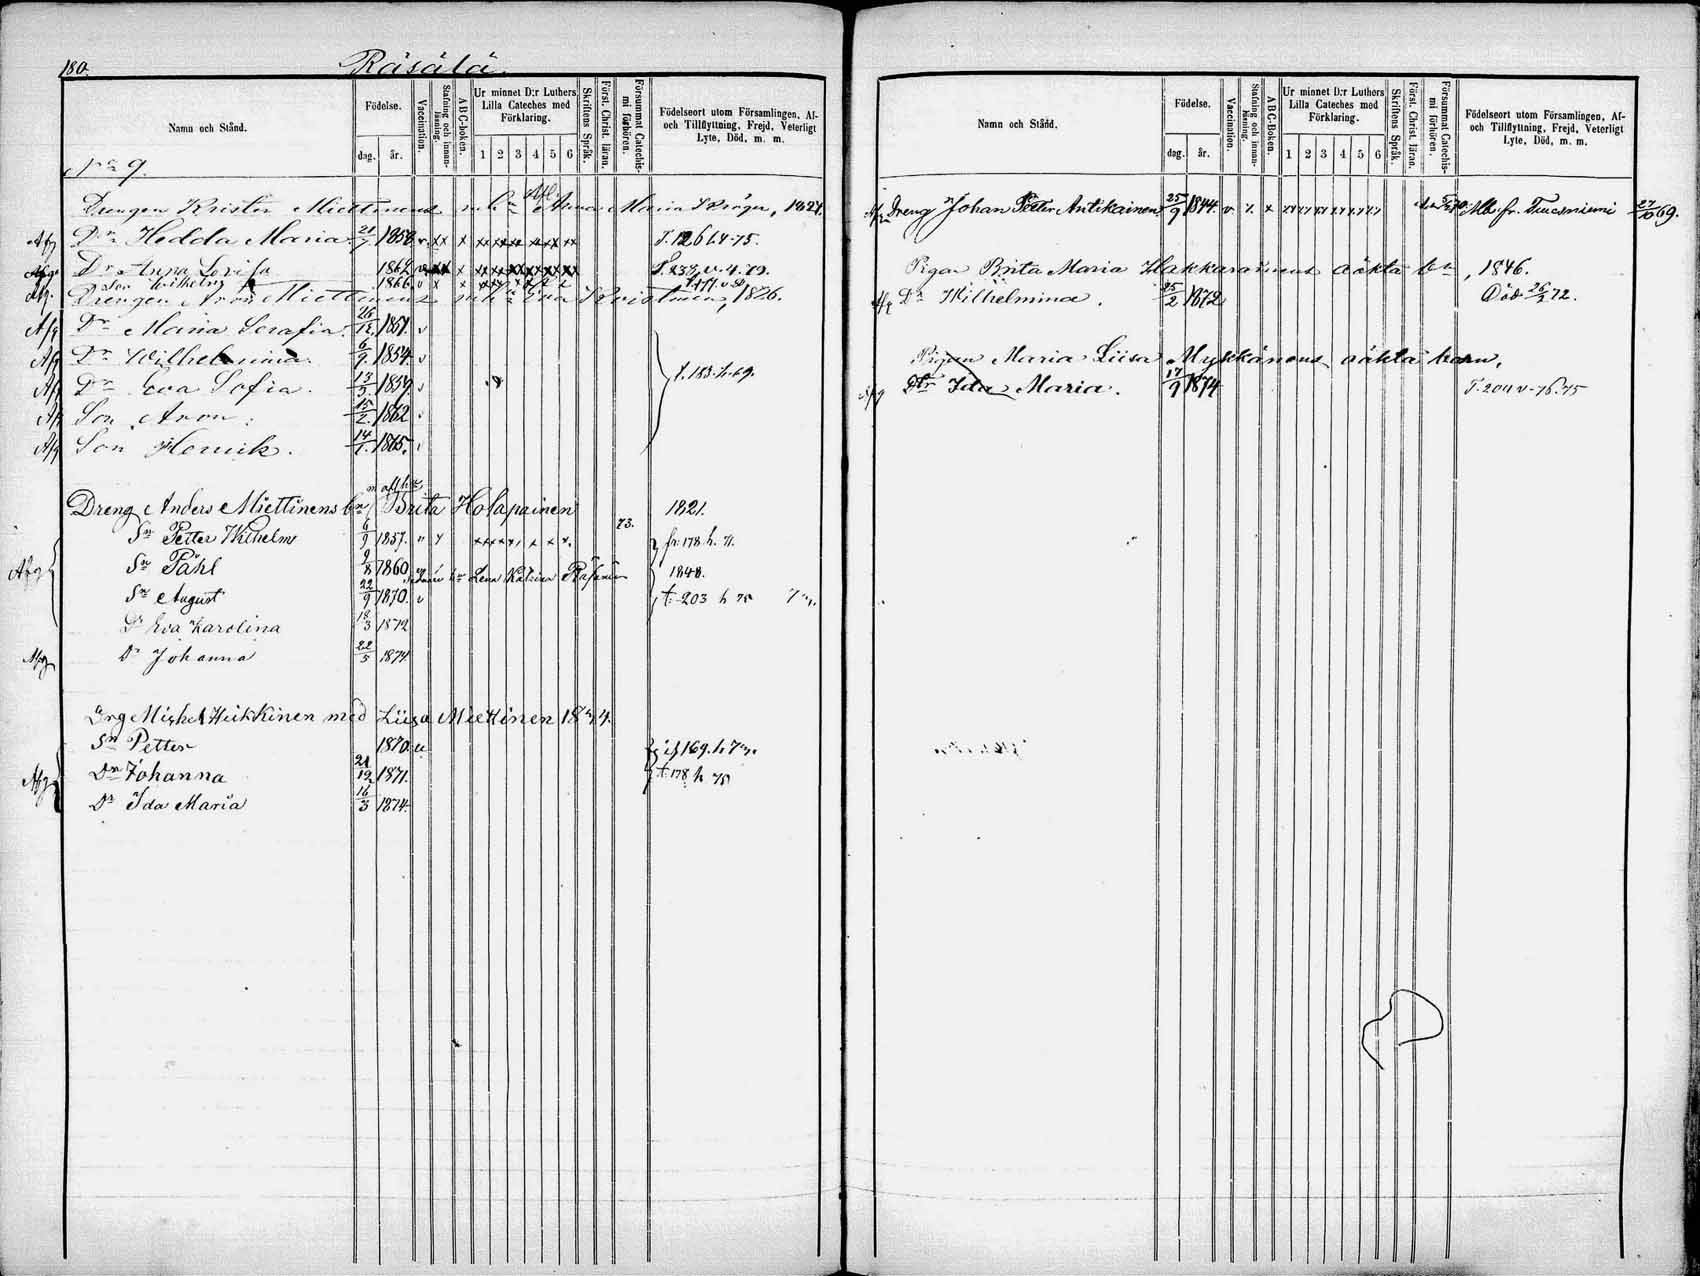 180.
Räsälä.
Namn och Stånd.
Födelse.
dag.
år.
Vaccination.
Stafning och innanläsning.
ABC-boken.
Ur minnet D:r Luthers Lilla Cateches med Förklaring.
1 2 3 4 5 6
Skriftens Språk.
Först. Christ. läran.
Försummat Catechismi förhören.
Födelseort utom Församlingen, Af- och Tillflyttning, Frejd, Veterligt Lyte, Död, m. m.
No 9.
Drengen Krister Miettinens Anna Maria Kröger, 1824.
Afg Dr Hedda Maria 21/7 1858. v. xx x
Dr Anna Lovisa 1862
Son Wilhelm 1866
Afg. Drengen Aron Miettinens Eva 1826.
Afg Dr Maria Serafia. 26/12. 1851. v
Afg Dr Wilhelmina. 6/9. 1854. v
Afg Dr Eva Sofia. 13/3. 1859. v
Afg Son Aron. 15/2. 1862 v
t. 183. h. 69.
Afg Son Henrik. 14/1. 1865. v
Dreng Anders Miettinens bn Brita Holapainen 1821.
Sn Petter Wilhelm 6/9 1857. v 73. fr. 178 h. 71.
Afg Sn Påhl 9/8 1860 Lena Katrina Räsänen 1848.
Sn August 22/9 1870. v t. 203 h 75
Dr Eva Karolina 18/3 1872
Afg Dr Johanna 22/5 1874.
Drg Mickel Heikkinen med Liisa Miettinen
Sn Petter 1870. v if 169. h
Afg Dr Johanna 21/12 1871. t. 178 h 75
Dr Ida Maria 16/3 1874.
Namn och Stånd.
Födelse.
dag.
år.
Vaccination.
Stafning och innanläsning.
ABC-Boken.
Ur minnet D:r Luthers Lilla Cateches med Förklaring.
1 2 3 4 5 6
Skriftens Språk.
Först. Christ. läran.
Försummat Catechismi förhören.
Födelseort utom Församlingen, Af- och Tillflyttning, Frejd, Veterligt Lyte, Död, m. m.
Dreng Johan Petter Antikainen 25/9 1844. v. fr. Tuusniemi 27/10 69.
Pigan Brita Maria Hakkarainens oäkta bn, 1846.
Afg Dr Wilhelmina. 25/2 1872 Död 26/3 72.
Pigan Maria Liisa Mykkänens oäkta barn,
Afg Dtr Ida Maria. 17/9 1874 T. 204 v - 76. 75